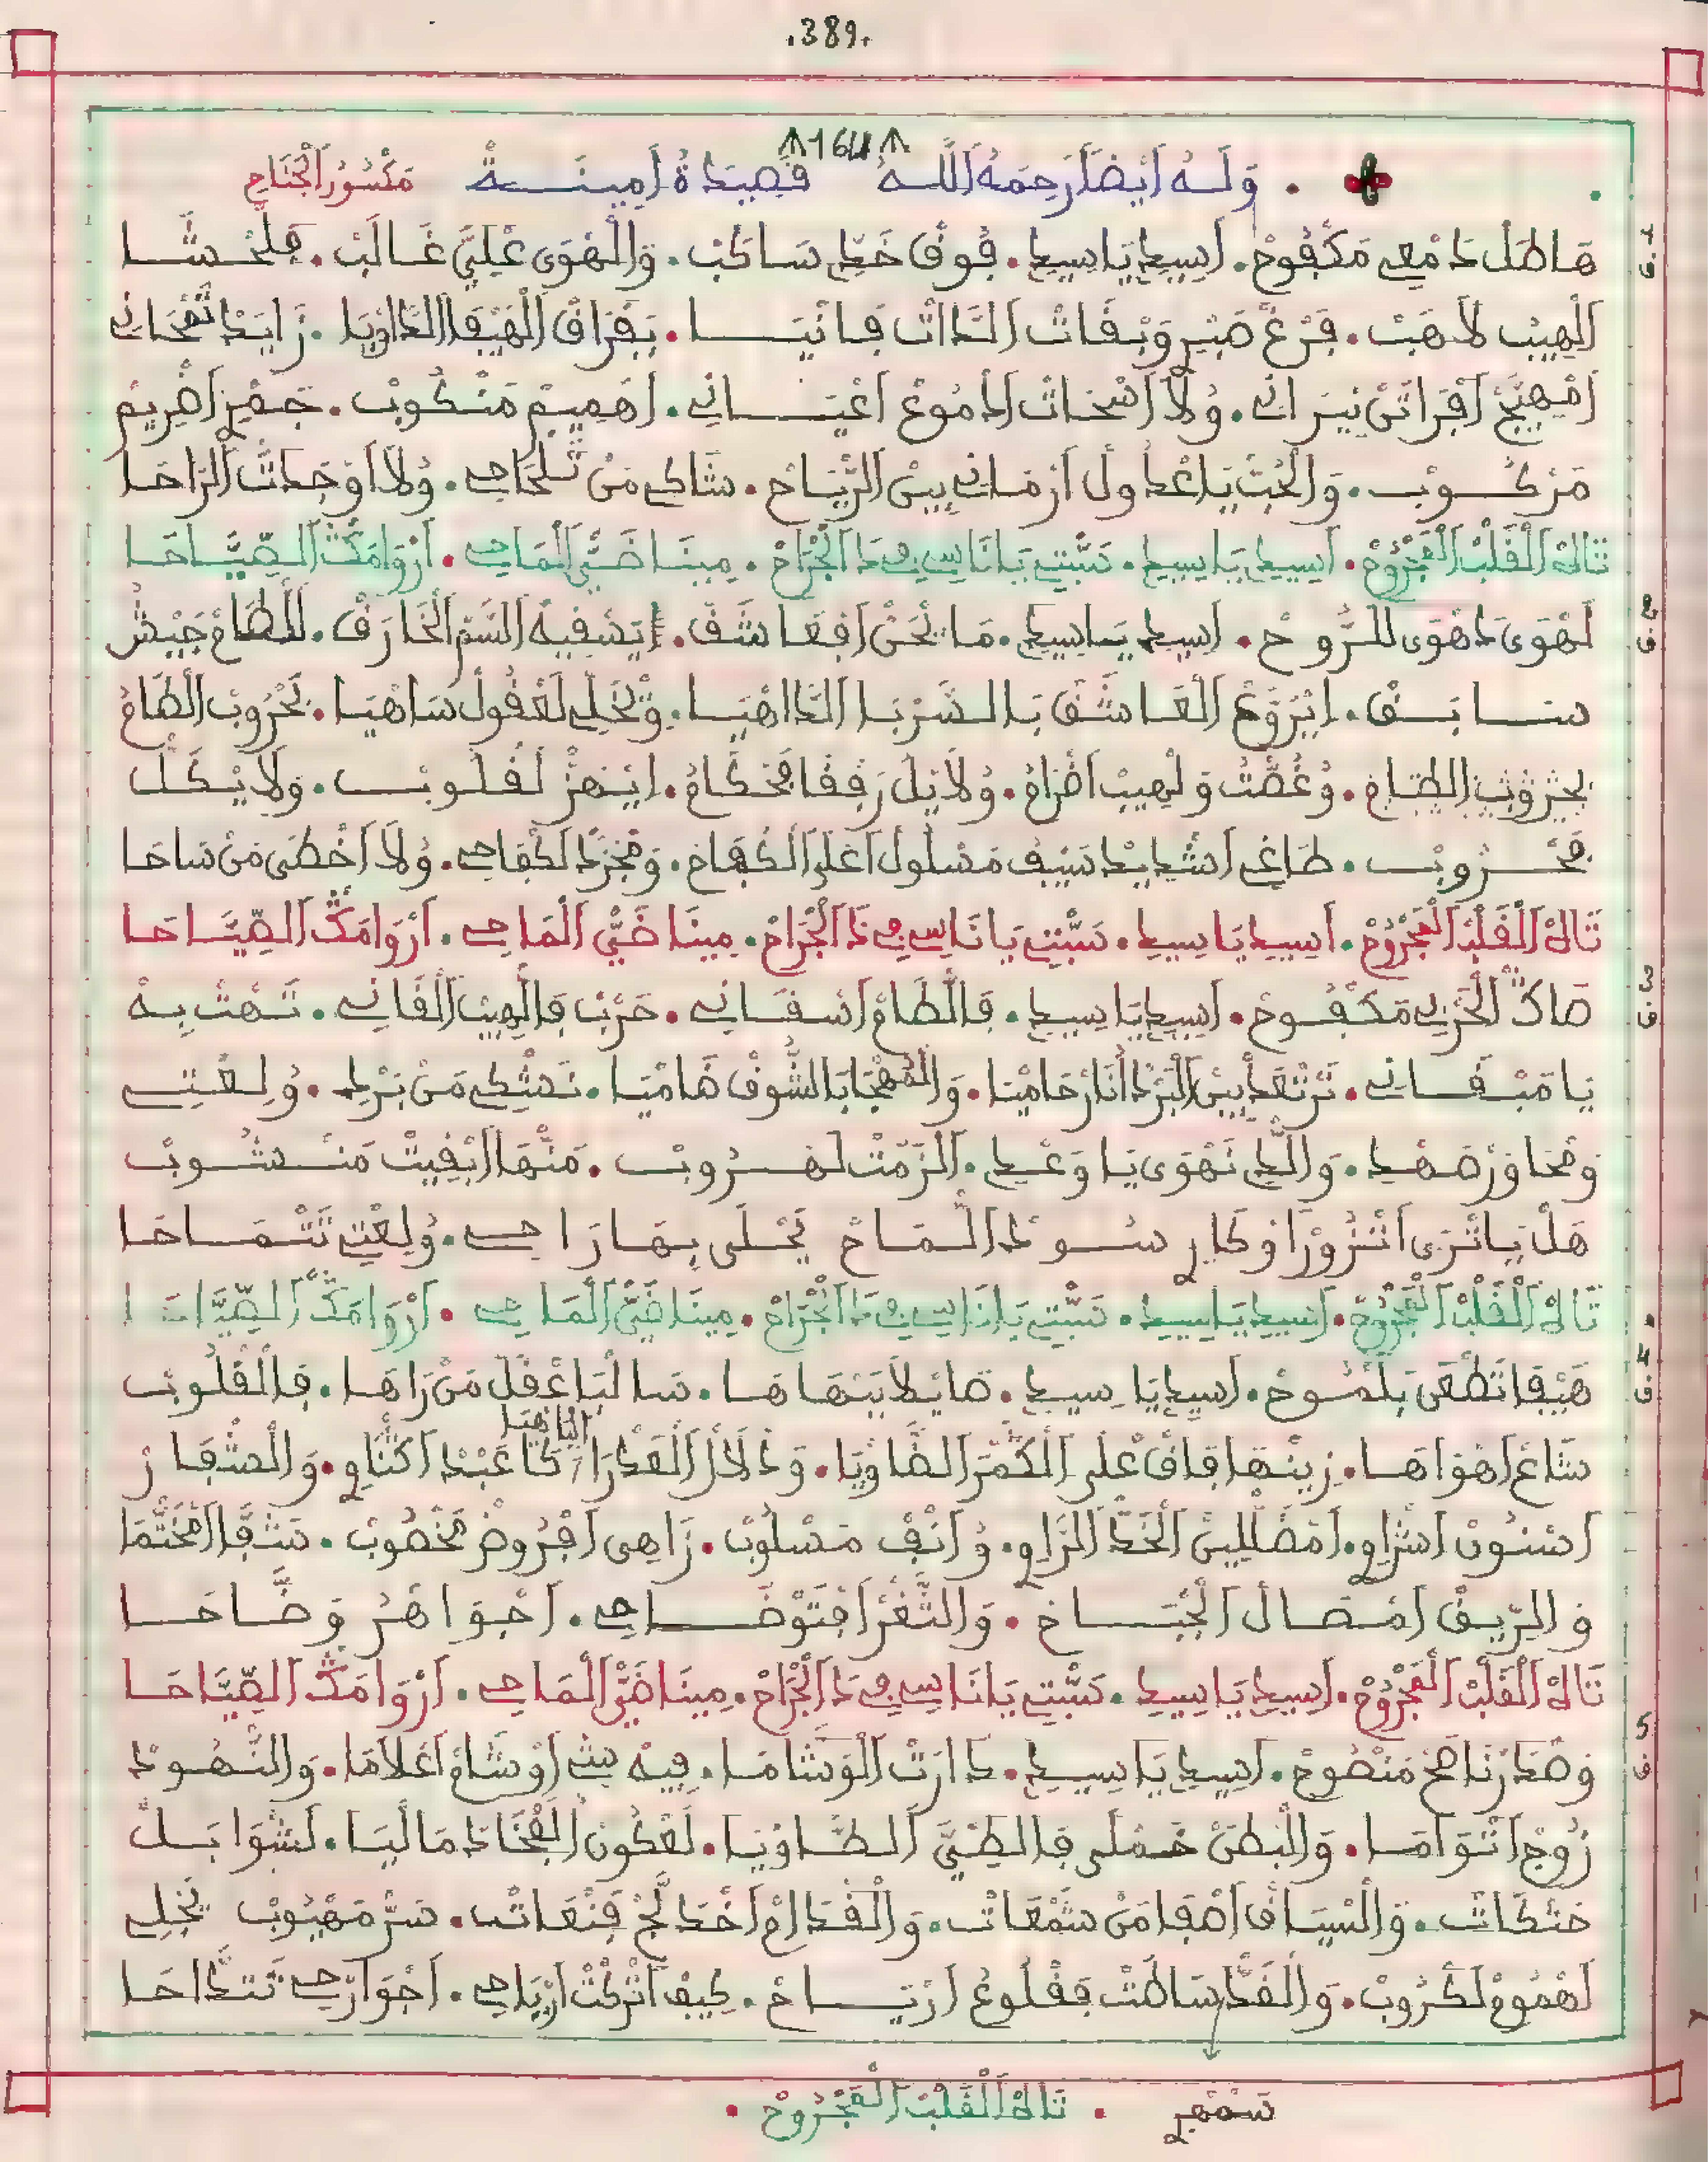 .389.
164
وَلَهُ اَيْضاً رَحِمَهُ اَللَّهُ قَصِيدَةُ اَمِينَة مَكْسُورْ اَلْجْنَاحِ
هَاطَلْ دَمْعِي مَكْفُوحْ. اَسِيدِي يَا سِيدِي. فُوقْ خَدِّي سَاكَبْ. وَالْهْوَى عْلِيَّ غَالَبْ. فَلَحْشَا
اَلْهِيبْ لاَهَبْ. فَرْغْ صَبْرِي وَبْقَاتْ الذَّاتْ فَانْيَا. بَفْرَاقْ الْهَيْفَا الدَّاوْيَا. زَايَدْ تَمْحَانِي
اَمْهِيَّجْ اَفْرَاتَنْ نِيرَانِي. وُلاَ اَسْخَاتْ اَدْمُوعْ اَعْيَانِي. اَهْمِيمْ مَنْكُوبْ. جَمْرِ اَضْرِيمْ
مَرْكُوبْ. وَالْحُبّْ يَا عْدُولْ اَزْمَانِي بِينْ الرّْيَاحْ. شَاكِي مَنْ تَلْحَاحِي. وُلاَ اَوْجَدْتْ الرَّاحَا
تَالَهْ اَلْقَلْبْ اَلْمَجْرُوحْ. اَسِيدِي يَا سِيدِي. سَبّْتِي يَا نَاسِي فِي دَا الْجْرَاحْ. مِينَا ضَيّْ اَلْمَاحِي. اَرْوَامَكْ الصِّيَّاحَا
2 ف
اَهْوَى دَهْوَى للرُّوحْ. اَسِيدِي يَا سِيدِي. مَا يْحَنّْ اَفْعَاشَقْ. اِيَسْقِيهْ السَّمّْ الْخَارَقْ. لَلْطَامْ جَيْشْ
سَابَقْ. اِيْرَوَّعْ الْعَاشَقْ بَالشَّرْبَا الدَّاهْيَا. وْيْخَلِّي لَعْقُولْ سَاهْيَا. بَحْرُوبْ الطَّامْ
وُغُصَّتُ وَلْهِيبْ اَضْرَامُ. وُلاَ يْلْ رَفْقَا فَحْكَامُ. اِيَنْهَزّْ لَقْلُوبْ. وَلاَ يْكَلّْ
فَحْرُوبْ. طَاغِي اَشْدِيدْ سَيْفْ مَسْلُولْ اَعْلَى الكْفَاحْ. وَمْجَرَّدْ لَكْفَاحِي. وُلاَ اَخْطَى مَنْ سَاحَا
تَالَهْ اَلْقَلْبْ اَلْمَجْرُوحْ. اَسِيدِي يَا سِيدِي. سَبّْتِي يَا نَاسِي فِي دَا الْجْرَاحْ. مِينَا ضَيّْ اَلْمَاحِي. اَرْوَامَكْ الصِّيَّاحَا
3 ف
صَاكْ الْحَرْبِي مَكْفُوحْ. اَسِيدِي يَا سِيدِي. فَالْطَامْ اَسْقَانِي. حَرْبُ فَالْهِيبْ اَلْقَانِي. تَهْتْ بِهْ
يَا مَبْقَانِي. نَرْتْعَدْ بِينْ الْبَرْدْ اَنَارْ حَامْيَا. وَالْمُهْجَا بَالشُّوقْ ضَامْيَا. نَشْكِي مَنْ بَرْدِي. وُلِعْتِي
وَمْحَاوَرْ صَهْدِي. وَاللِّي نَهْوَى يَا وَعْدِي. اَلْزَمْتْ لَهْرُوبْ. مَنْهَا اَبْقِيتْ مَنْشُوبْ
هَلْ يَا تْرَى اَتْزُورْ اَوْكَارِي سُودْ اَلْمَاحْ يَحْلَى بِهَا رَاحِي. وُلِعْتِي تَتْمَاحَا
تَالَهْ اَلْقَلْبْ اَلْمَجْرُوحْ. اَسِيدِي يَا سِيدِي. سَبّْتِي يَا نَاسِي فِي دَا الْجْرَاحْ. مِينَا ضَيّْ اَلْمَاحِي. اَرْوَامَكْ الصِّيَّاحَا
4 ف
هَيْفَا تَطْعَنْ بَلْمُوحْ. اَسِيدِي يَا سِيدِي. صَايْلاَ بَبْهَاهَا. سَالْبَا عْقَلْ مَنْ رَاهَا. فَالْقْلُوبْ
شَاعْ اَهْوَاهَا. زِينْهَا فَاقْ عْلَى اَلْكَمَرْ الضَّاوْيَا. وَدْلاَلْ الْعَدْرَا الْبَاهْيَا كَا عَبْدْ اَكْنَاوِي. وَالْشْفَارْ
اَسْنُونْ اَسْرَاوِي. اَمْضَلْلِينْ اَلْخَدّْ الرَّاوِي. وُاَنْفْ مَسْلُوبْ. زَاهِي اَفْرُوضْ مَخْصُوبْ. شَفَّا اَمْخَتّْمَا
وَالرِّيقْ اَمْصَالْ اَلْجْبَاحْ. وَالثَّغْرْ اَفْتَوْضَاحِي. اَجْوَاهْرُ وَضَّاحَا
تَالَهْ اَلْقَلْبْ اَلْمَجْرُوحْ. اَسِيدِي يَا سِيدِي. سَبّْتِي يَا نَاسِي فِي دَا الْجْرَاحْ. مِينَا ضَيّْ اَلْمَاحِي. اَرْوَامَكْ الصِّيَّاحَا
5 ف
وَصْدَرْ نَاصَحْ مَنْصُوحْ. اَسِيدِي يَا سِيدِي. دَارَتْ الْوَشَامَا. فِيهْ بِينْ اَوْشَامْ اَعْلاَمَا. وَالنّْهُودْ
زُوجْ اَتْوَامَا. وَالْبْطَنْ خَمْلَى فَالطَّيّْ اَلطَّاوْيَا. لَعْكُونْ الْفْخَادْ مَالْيَا. لَشْوَابَلْ
حَنْكَاتْ. وَالسّْيَاقْ اَصْفَا مَنْ شَمْعَاتْ. وَالْقْدَامْ اَخْدَلَّجْ فَنْعَاتْ. سَرّْ مَهْيُوبْ يَجْلِي
لَهْمُومْ لَكْرُوبْ. وَالْقَدّْ سَاطَتْ فَقْلُوعُ اَرْيَاحْ. كِيفْ اَتْرَكْتْ اَرْيَاحِي. اَجْوَارْحِي تَتْدَّاحَا
سَمْهَرِي . تَالَهْ اَلْقَلْبْ اَلْمَجْرُوحْ .